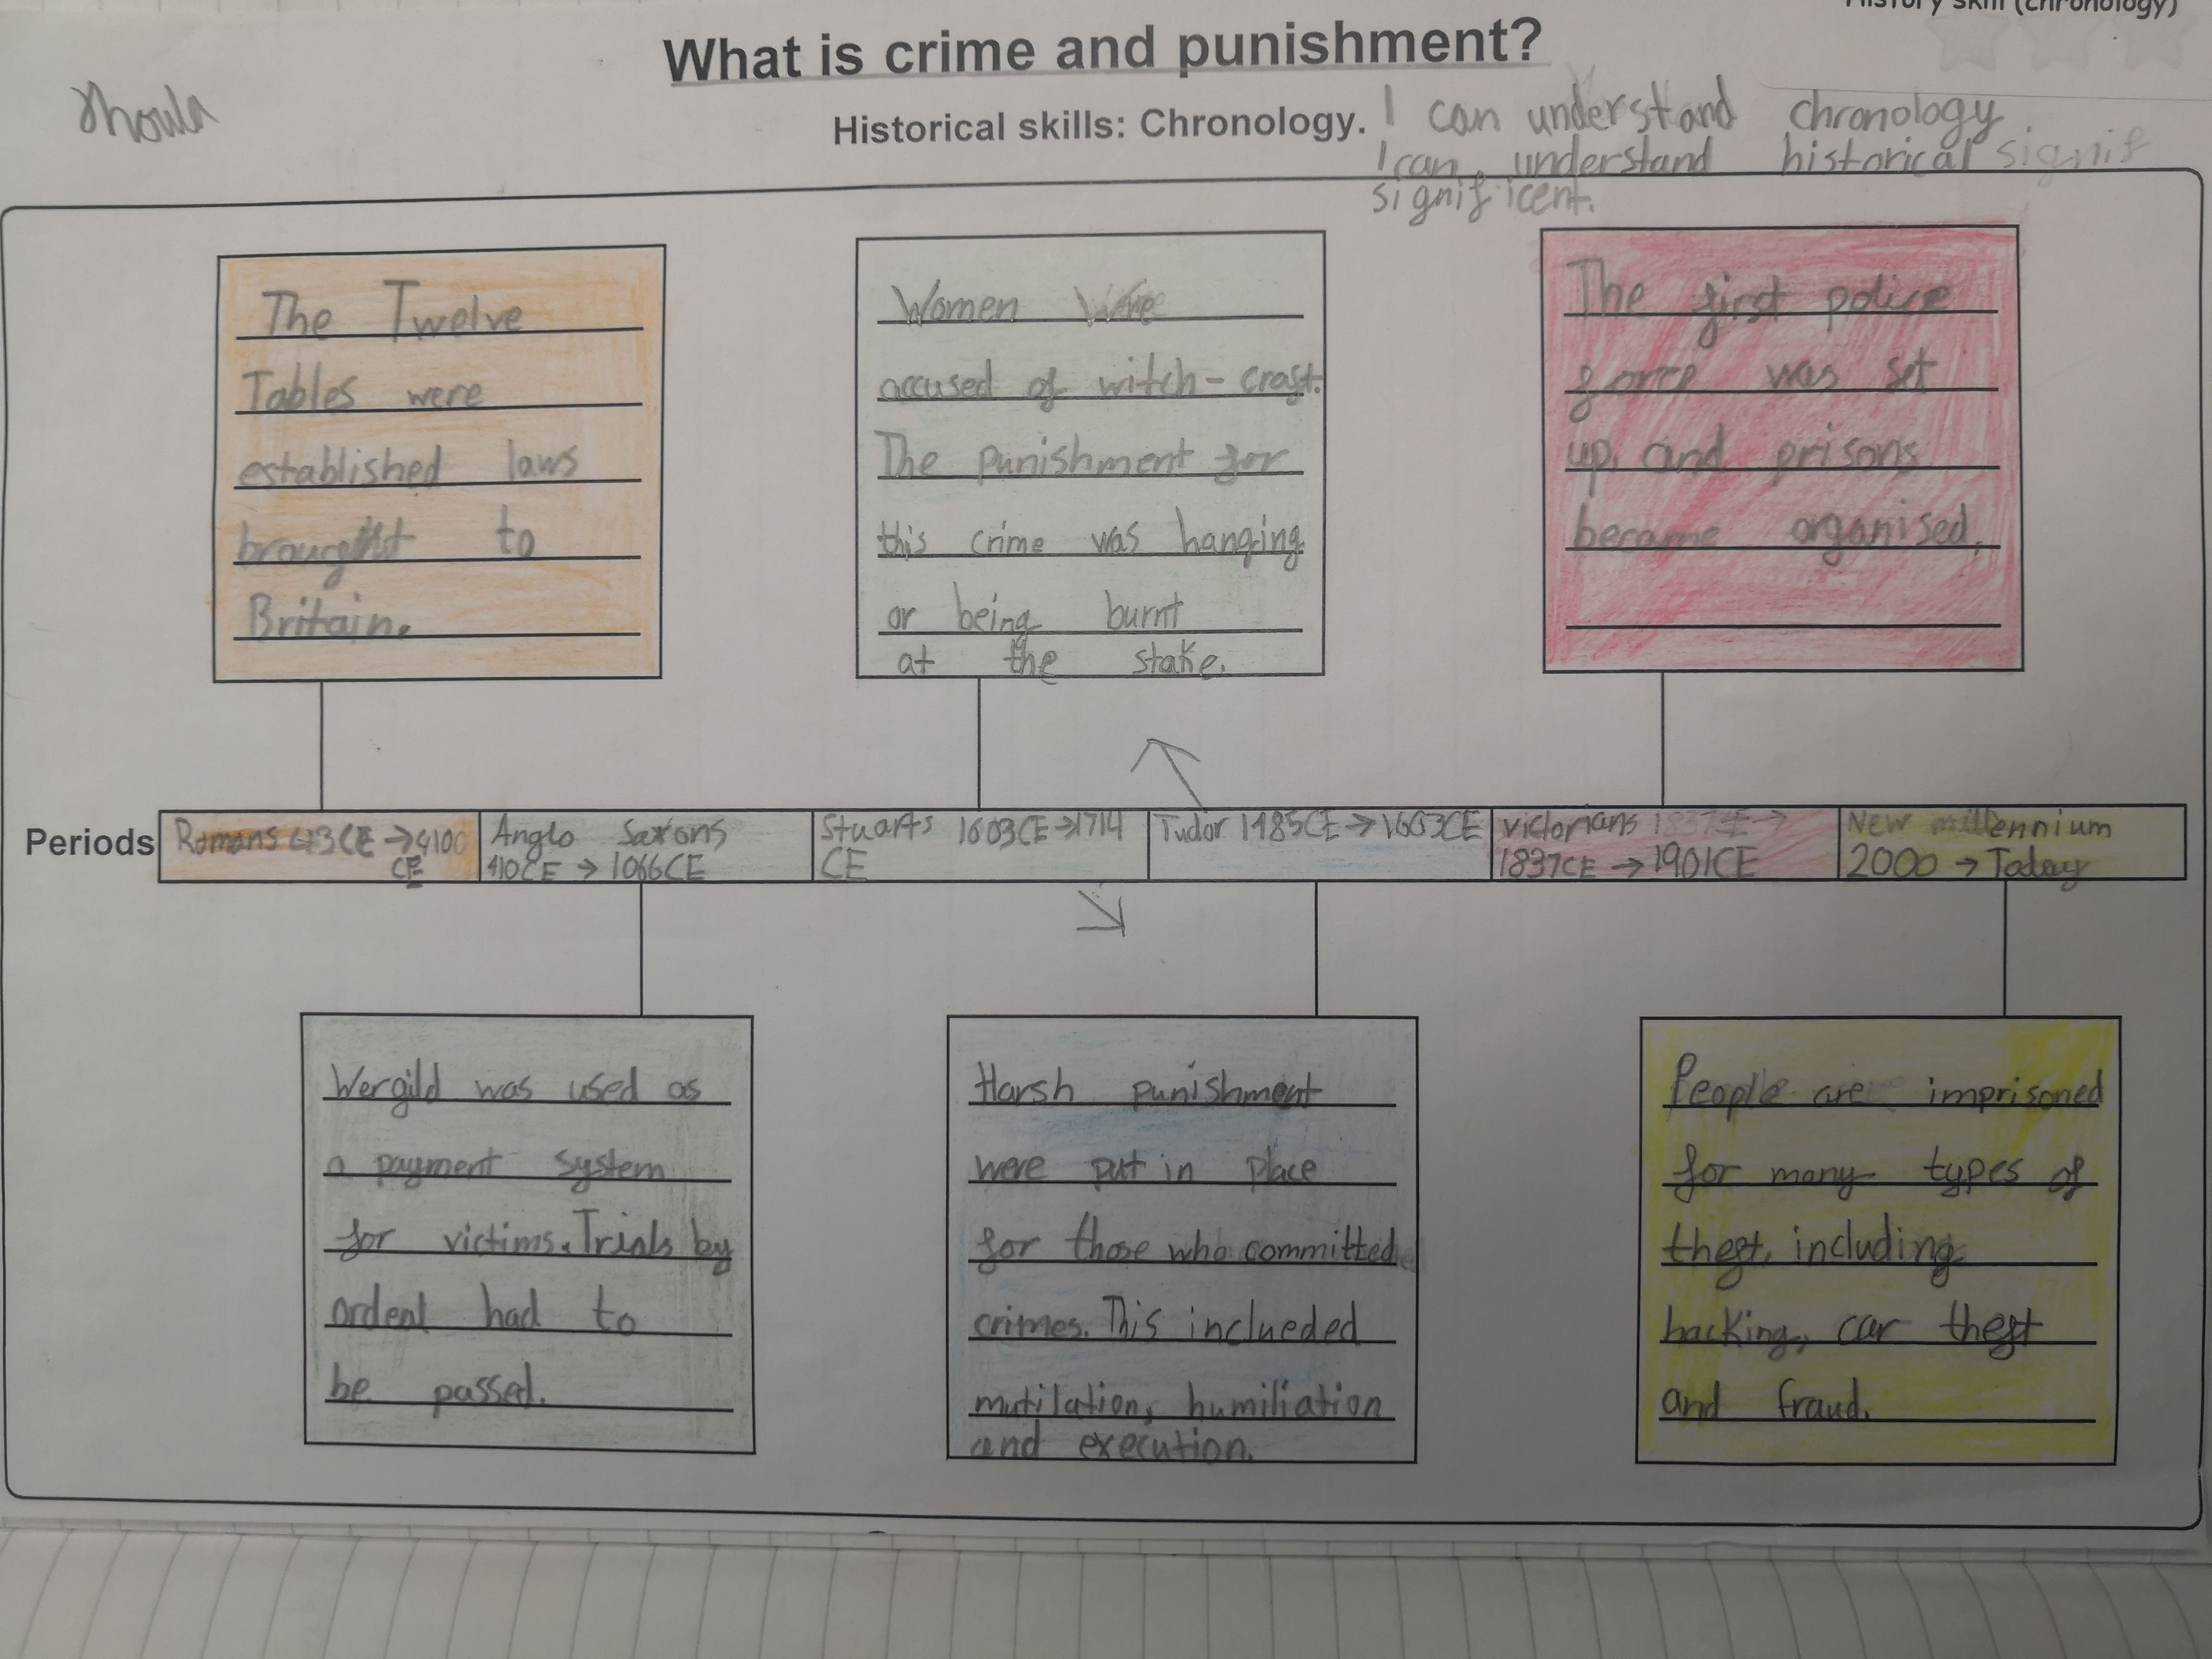 History skill (chronology)
What is crime and punishment?
Should
Historical skills: Chronology. I can understand chronology.
I can understand historical signif
significent.
The Twelve
Tables were
established laws
brought to
Britain.
Women Were
accused of witch-craft.
The punishment for
this crime was hanging
or being burnt
at the stake.
The first police
force was set
up, and prisons
became organised.
Periods
Romans 43CE → 4100
CE
Anglo Saxons
410CE → 1066CE
Stuarts 1603CE → 1714
CE
Tudor 1485CE → 1603CE
victorians 1837CE →
1837CE → 1901CE
New millennium
2000 → Today
Wergild was used as
a payment system
for victims. Trials by
ordeal had to
be passed.
Harsh punishment
were put in place
for those who committed
crimes. This inclueded
mutilation, humiliation
and execution.
People are imprisoned
for many types of
theft, including
hacking, car theft
and fraud.